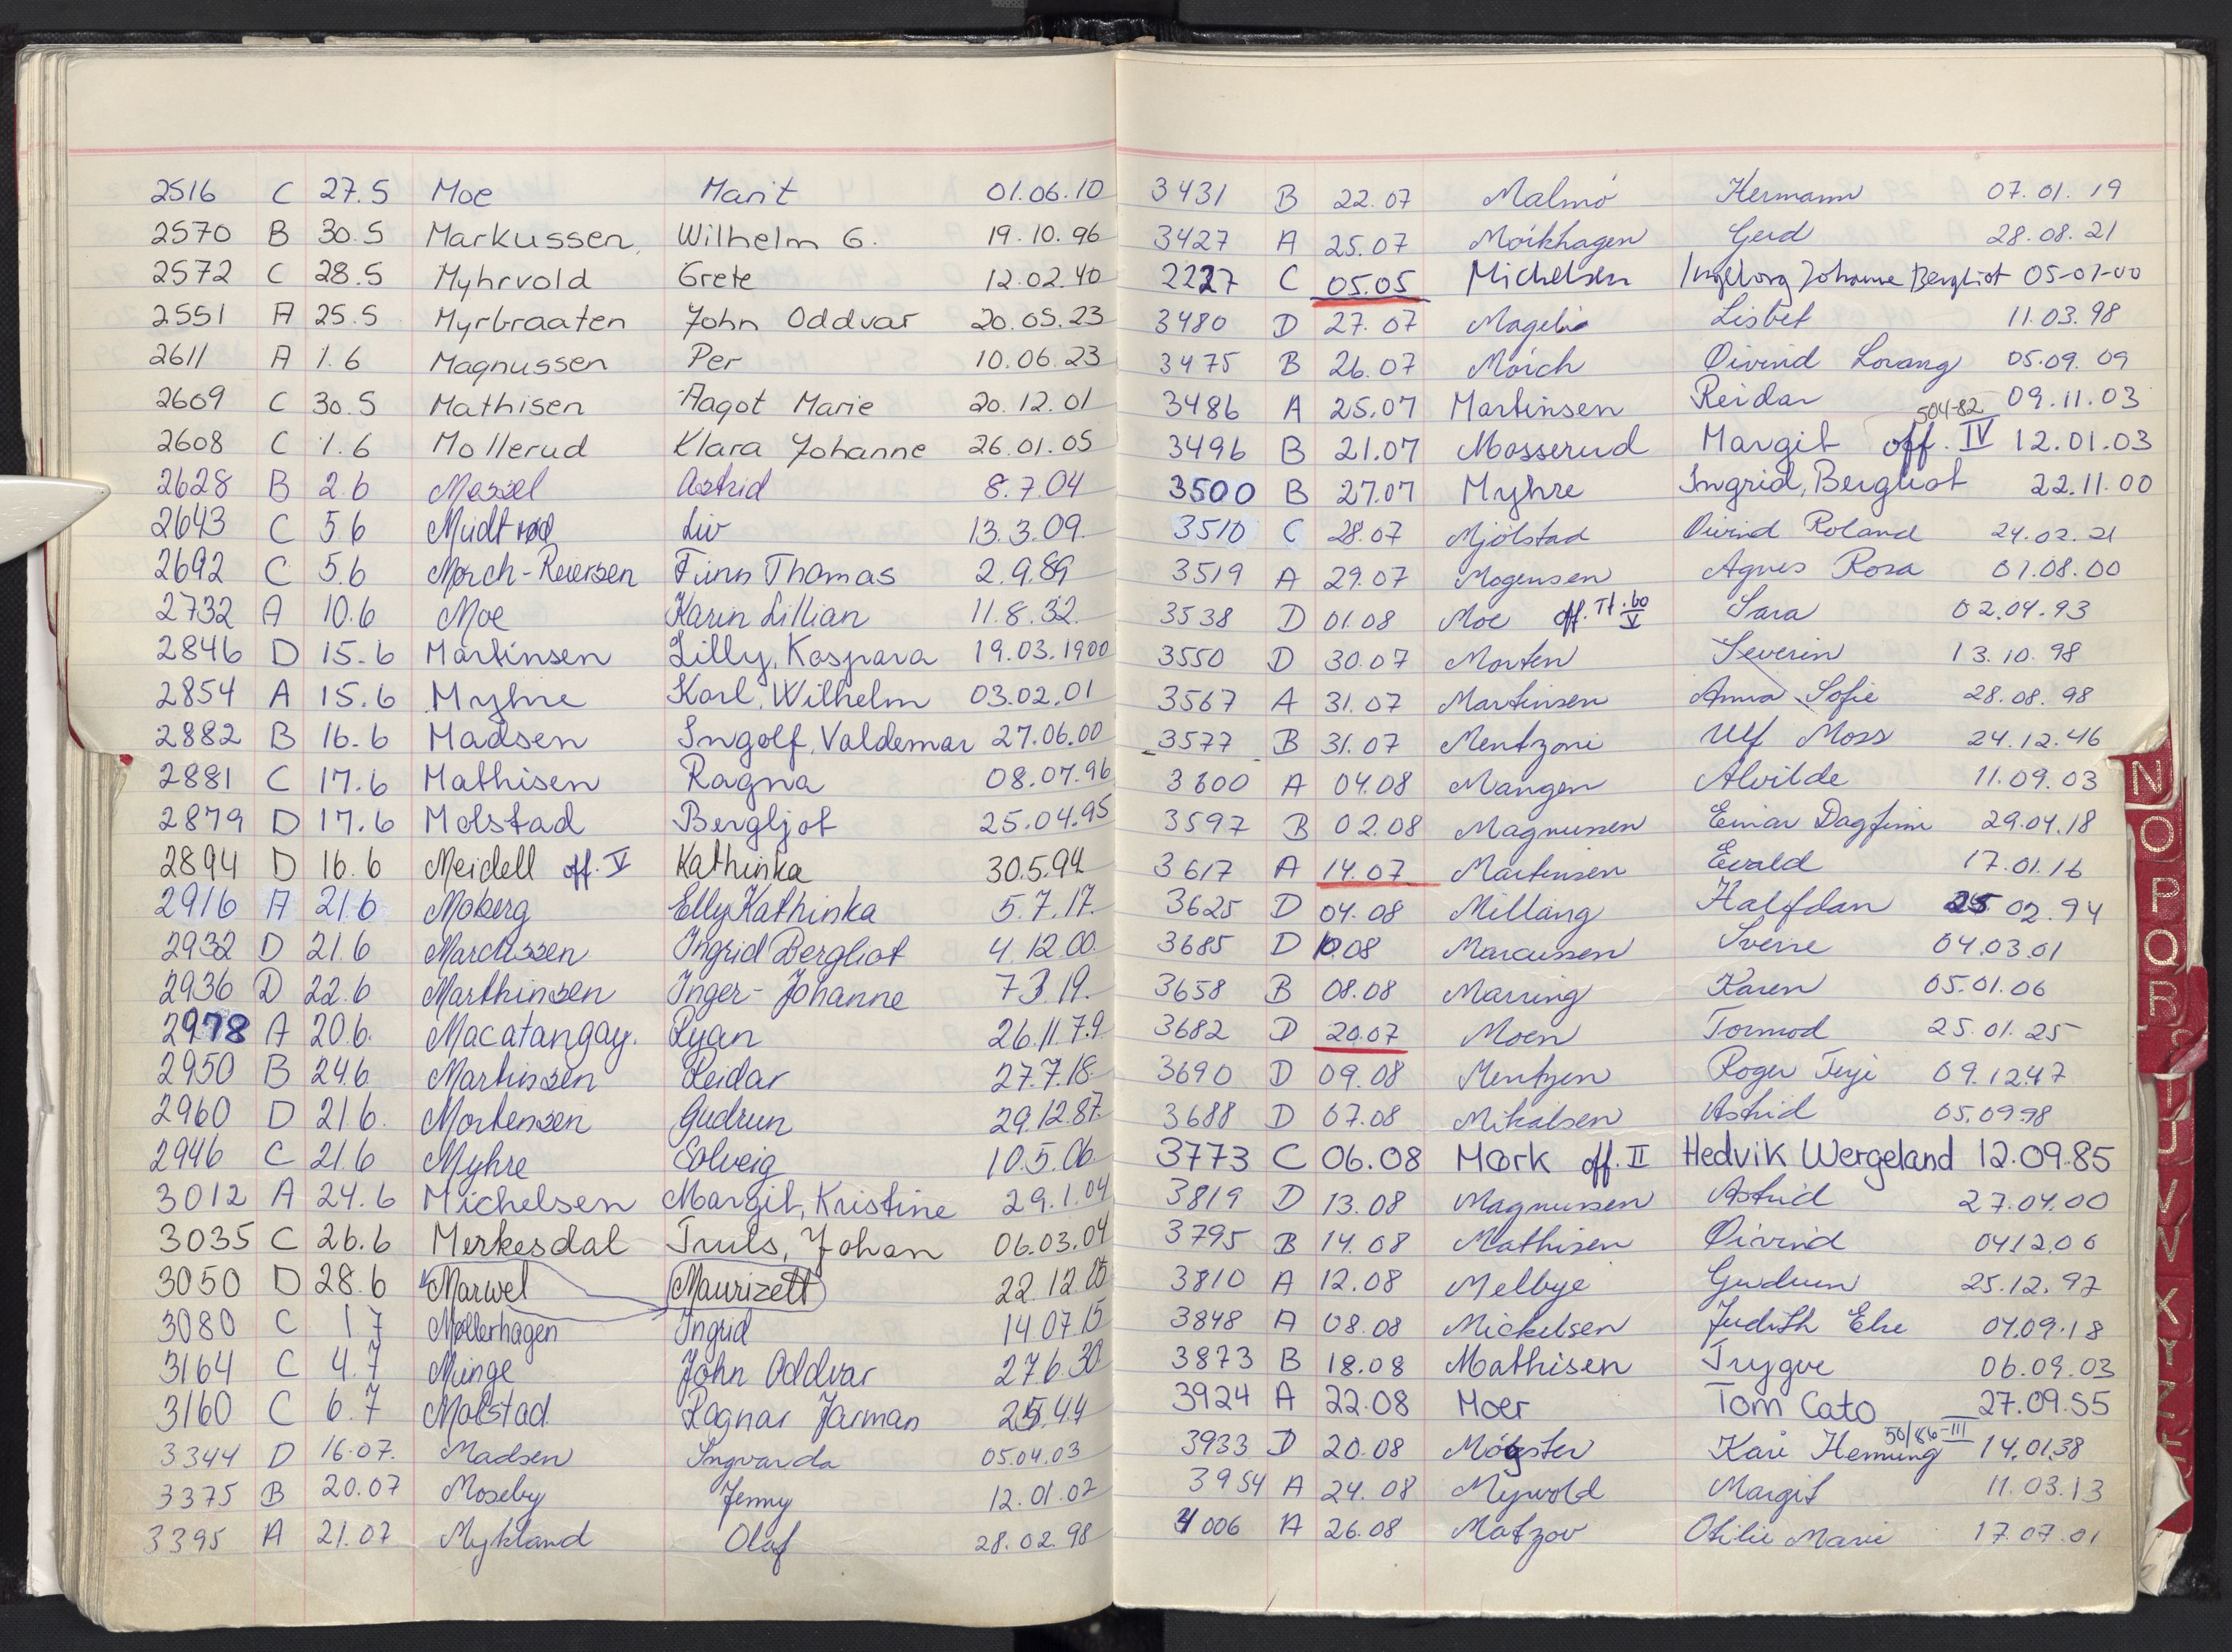 2516 C 27.5 Moe Marit 01.06.10
2570 B 30.5 Markussen, Wilhelm G. 19.10.96
2572 C 28.5 Myhrvold Grete 12.02.40
2551 A 25.5 Myrbraaten John Oddvar 20.05.23
2611 A 1.6 Magnussen Per 10.06.23
2609 C 30.5 Mathisen Aagot Marie 20.12.01
2608 C 1.6 Mollerud Klara Johanne 26.01.05
2628 B 2.6 Messel Astrid 8.7.04
2643 C 5.6 Midtrød Liv 13.3.09.
2692 C 5.6 Mørch-Reiersen Finn Thomas 2.9.89
2732 A 10.6 Moe Karin Lillian 11.8.32.
2846 D 15.6 Martinsen Lilly, Kaspara 19.03.1900
2854 A 15.6 Myhre Karl, Wilhelm 03.02.01
2882 B 16.6 Madsen Ingolf, Valdemar 27.06.00
2881 C 17.6 Mathisen Ragna 08.07.96
2879 D 17.6 Molstad Bergljot 25.04.95
2894 D 16.6 Meidell off. V Kathinka 30.5.94
2916 A 21.6 Moberg Elly Kathinka 5.7.17.
2932 D 21.6 Marcussen Ingrid Bergliot 4.12.00.
2936 D 22.6 Marthinsen Inger-Johanne 7.3.19.
2978 A 20.6. Macatangay. Ryan 26.11.79
2950 B 24.6 Martinsen Reidar 27.7.18.
2960 D 21.6. Mortensen Gudrun 29.12.87.
2946 C 21.6 Myhre Solveig 10.5.06.
3012 A 24.6 Michelsen Margit, Kristine 29.1.04
3035 C 26.6 Merkesdal Truls, Johan 06.03.04
3050 D 28.6 Marwel Maurizett 22.12.05
3080 C 1 7 Møllerhagen Ingrid 14 07 15
3164 C 4.7 Minge John Oddvar 27.6.30
3160 C 6.7 Molstad Ragnar Jarman 25.4.4
3344 D 16.07. Madsen Ingvarda 05.04.03
3375 B 20.07 Moseby Jenny 12.01.07
3395 A 21.07 Mykland Olaf 28.02.98
3431 B 22.07 Malmö Hermann 07.01.19
3427 A 25.07 Mörkhagen Gerd 28.08.21
2227 C 05.05 Michelsen Ingeborg Johanne Bergliot 05-07-00
3480 D 27.07 Lisbet 11.03.98
3475 B 26.07 Mörch Öivind Lorang 05.09.09
3486 A 25.07 Martinsen Reidar 09.11.03
504-82
3496 B 21.07 Mosserud Margit off. IV 12.01.03
3500 B 27.07 Myhre Ingrid, Bergliot 22.11.00
3510 C 28.07 Mjölstad Öivind Roland 24.02.21
3519 A 29.07 Mogensen Agnes Rosa 01.08.00
3538 D 01.08 Moe off. V Sara 02.04.93
3550 D 30.07 Morten Severin 13.10.98
3567 A 31.07 Martinsen Anna Sofie 28.08.98
3577 B 31.07 Mentzoni Ulf Moss 24.12.46
3600 A 04.08 Mangen Alvilde 11.09.03
3597 B 02.08 Magnussen Einar Dagfinn 29.04.18
3617 A 14.07 Martinsen Evald 17.01.16
3625 D 04.08 Millang Halfdan 25 02.94
3685 D 10.08 Marcussen Sverre 04.03.01
3658 B 08.08 Marring Karen 05.01.06
3682 D 20.07 Moen Tormod 25.01.25
3690 D 09.08 Mentzen Roger Terje 09.12.47
3688 D 07.08 Mikalsen Astrid 05.09.98
3773 C 06.08 Mørk off. II Hedvik Wergeland 12.09.85
3819 D 13.08 Magnussen Astrid 27.04.00
3795 B 14.08 Mathisen Öivind 04.12.06
3810 A 12.08 Melbye Gudrun 25.12.97
3848 A 08.08 Mickelsen Judith Else 04.09.18
3873 B 18.08 Mathisen Trygve 06.09.03
3924 A 22.08 Moer Tom Cato 27.09.55
50/86-III
3933 D 20.08 Mögster Kåre Henning 14.01.38
3954 A 24.08 Myrvold Margit 11.03.13
4006 A 26.08 Matzov Otilie Marie 17.07.01
N
O
P
Q
R
U
V
X
Y
Z